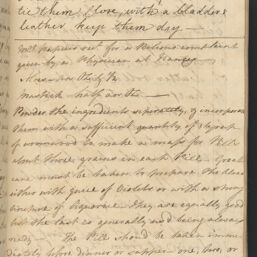 tie them close, with a bladder &
leather keep them dry —
given by a Physician at
Mastich half an oz —
Powder the ingredients separately, & incorporate
them with a sufficient quantity of Syrup
of wormwood to make a mass for Pills
about three grains in each Pill. Great
care must be taken to prepare the Aloes
either with juice of Violets or with a strong
tincture of Liquorice. They are equally good
but the last is generally used being always
ready — The Pill should be taken imme
diately before dinner or supper one, two, or